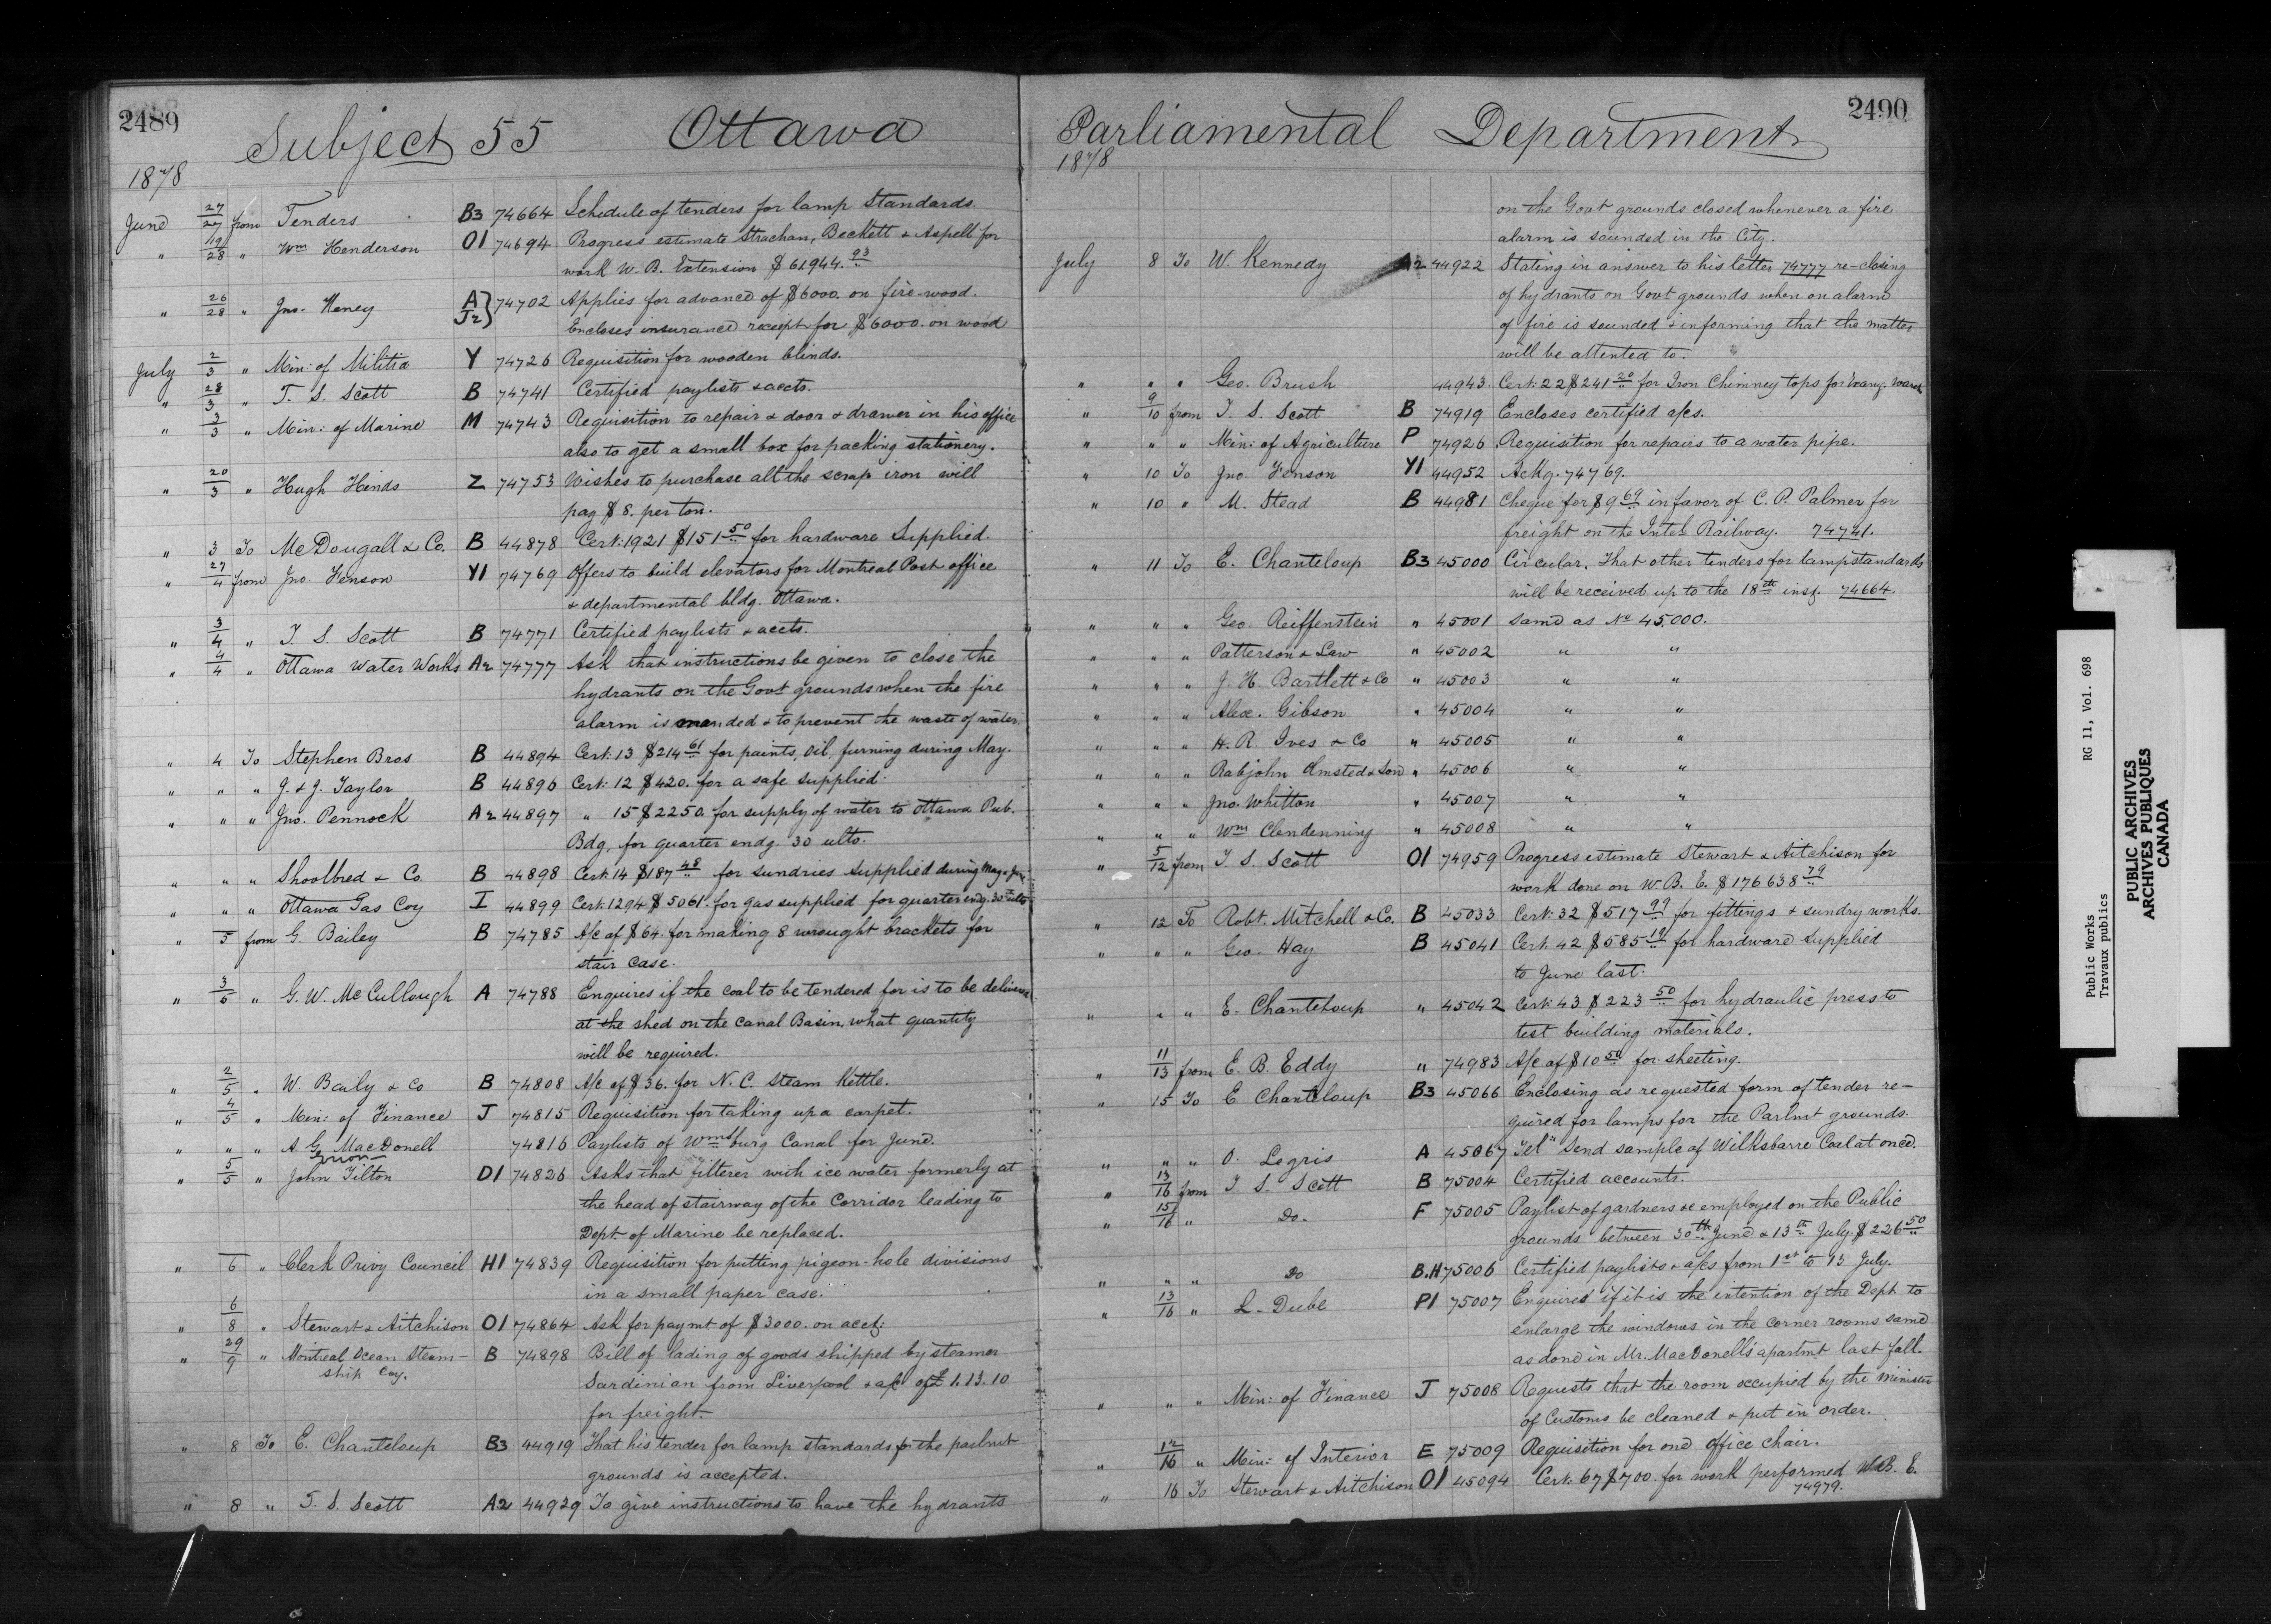 2489
Subject 55 Ottawa
1878
June 27/27 from Tenders B3 74664 Schedule of tenders for lamp Standards.
" 19/28 " Wm Henderson O1 74694 Progress estimate Strachan, Beckett & Aspell for
work W. B. Extension $61944.93
" 26/28 " Jno. Heney A J2} 74702 Applies for advance of $6000. on fire-wood.
Encloses insurance receipt for $6000. on wood
July 2/3 " Min: of Militia Y 74726 Requisition for wooden blinds.
" 28/3 " T. S. Scott B 74741 Certified paylists & accts.
" 3/3 " Min: of Marine M 74743 Requisition to repair & door & drawer in his office
also to get a small box for packing stationery.
" 20/3 " Hugh Hinds Z 74753 Wishes to purchase all the scrap iron will
pay $8. per ton.
" 3 To McDougall & Co. B 44878 Cert: 1921 $151 50 for hardware Supplied.
" 27/4 from Jno. Fenson Y1 74769 Offers to build elevators for Montreal Post office
& departmental bldg. Ottawa.
" 3/4 " T. S. Scott B 74771 Certified paylists & accts.
" 4/4 " Ottawa Water Works A2 74777 Ask that instructions be given to close the
hydrants on the Govt grounds when the fire
alarm is sounded & to prevent the waste of water.
" 4 To Stephen Bros B 44894 Cert: 13 $214 61 for paints, oil, furning during May.
" " " J. & J. Taylor B 44896 Cert: 12 $420. for a safe supplied.
" " " Jno. Pennock A2 44897 " 15 $2250. for supply of water to Ottawa Pub.
Bdg. for quarter endg. 30 ulto.
" " " Shoolbred & Co. B 44898 Cert: 14 $187 48 for sundries supplied during May & June
" " " Ottawa Gas Coy I 44899 Cert: 1294 $5061. for gas supplied for quarter endg. 30 ulto
" 5 from G. Bailey B 74785 A/c of $64. for making 8 wrought brackets for
stair case.
" 3/5 " G. W. McCullough A 74788 Enquires if the coal to be tendered for is to be delivered
at the shed on the Canal Basin, what quantity
will be required.
" 2/5 " W. Baily & Co B 74808 A/c of $36. for N. C. Steam Kettle.
" 4/5 " Min: of Finance J 74815 Requisition for taking up a carpet.
" " " A. G. MacDonell 74816 Paylists of Wmsburg Canal for June.
Error
" 5/5 " John Tilton D1 74826 Asks that filterer with ice water formerly at
the head of stairway of the Corridor leading to
Dept of Marine be replaced.
" 6 " Clerk Privy Council H1 74839 Requisition for putting pigeon-hole divisions
in a small paper case.
" 6/8 " Stewart & Aitchison O1 74864 Ask for paymt of $3000. on acct:
" 29/9 " Montreal Ocean Steam- B 74898 Bill of lading of goods shipped by steamer
ship Coy. Sardinian from Liverpool & a/c of £1.13.10
for freight.
" 8 To E. Chanteloup B3 44919 That his tender for lamp standards for the parlmt
grounds is accepted.
" 8 " T. S. Scott A2 44929 To give instructions to have the hydrants
2490
Parliamental Department
1878
on the Govt grounds closed whenever a fire
alarm is sounded in the City.
July 8 To W. Kennedy A2 44922 Stating in answer to his letter 74777 re-closing
of hydrants on Govt grounds when on alarm
of fire is sounded & informing that the matter
will be attented to.
" " " Geo. Brush 44943. Cert: 22 $241 20 for Iron Chimney tops for
" 9/10 from T. S. Scott B 74919 Encloses certified a/cs.
" " " Min: of Agriculture P 74926 Requisition for repairs to a water pipe.
" 10 To Jno. Fenson Y1 44952 Ackg. 74769.
" 10 " M. Stead B 44981 Cheque for $9 69 in favor of C. P. Palmer for
freight on the Intel Railway. 74741.
" 11 To E. Chanteloup B3 45000 Circular. That other tenders for lampstandards
will be received up to the 18th inst. 74664.
" " " Geo. Reiffenstein " 45001 same as No 45,000.
" " " Patterson & Law " 45002 " "
" " " J. H. Bartlett & Co " 45003 " "
" " " Alex. Gibson " 45004 " "
" " " H. R. Ives & Co " 45005 " "
" " " Rabjohn Omsted & Son " 45006 " "
" " " Jno. Whitton " 45007 " "
" " " Wm Clendenning " 45008 " "
" 5/12 from T. S. Scott O1 74959 Progress estimate Stewart & Aitchison for
work done on W. B. E. $176638 79
" 12 To Robt. Mitchell & Co. B 45033 Cert: 32 $517 99 for fittings & sundry works.
" " " Geo. Hay B 45041 Cert: 42 $585 19 for hardware supplied
to June last.
" " " E. Chanteloup " 45042 Cert: 43 $223 50 for hydraulic press to
test building materials.
" 11/13 from E. B. Eddy " 74983 A/c of $10 50 for sheeting.
" 15 To E. Chanteloup B3 45066 Enclosing as requested form of tender re-
quired for lamps for the Parlmt grounds.
" " " O. Legris A 45067 Tel" Send sample of Wilksbarre Coal at once.
" 13/16 from T. S. Scott B 75004 Certified accounts.
" 15/16 " Do. F 75005 Paylist of gardners &c employed on the Public
grounds between 30th June & 13th July. $226 50
" " " Do B.H 75006 Certified paylists & a/cs from 1st to 13 July.
" 13/16 " L. Dube P1 75007 Enquires if it is the intention of the Dept to
enlarge the windows in the corner rooms same
as done in Mr. MacDonell's apartmt last fall.
" " " Min: of Finance J 75008 Requests that the room occupied by the Minister
of Customs be cleaned & put in order.
" 12/16 " Min: of Interior E 75009 Requisition for one office chair.
" 16 To Stewart & Aitchison O1 45094 Cert: 67 $700. for work performed W. B. E.
74979.
Public Works RG 11, Vol. 698
Travaux publics
PUBLIC ARCHIVES
ARCHIVES PUBLIQUES
CANADA